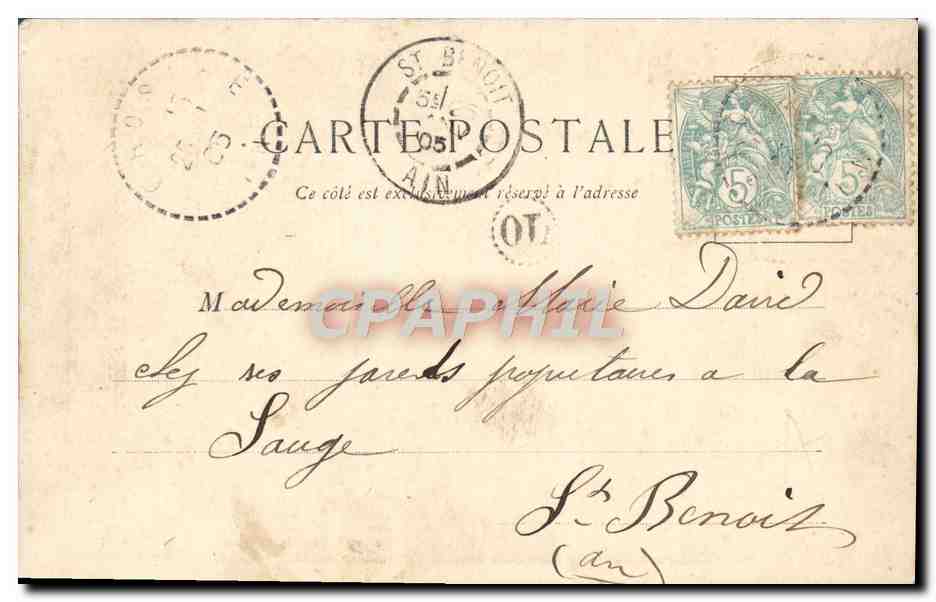 ST BENOIT
05
AIN
CARTE POSTALE
Ce côté est exclusivement réservé à l'adresse
5c POSTES
5c POSTES
OL
Mademoiselle Marie David
chez ses parents propietaires a la
Sauge
St Benoit
(ain)
CPAPHIL